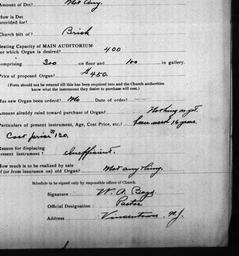 Amount of Debt? Not Any.
How is Debt
provided for?
Church built of? Brick
Seating Capacity of MAIN AUDITORIUM
for which Organ is desired? 400
comprising 300 on floor and 100 in gallery.
Price of proposed Organ? $450.
(Form should not be entered till this has been required into and the Church authorities
know what the instrument they desire to purchase will cost.)
Has new Organ been ordered? No Date of order?
Amount already raised toward purchase of Organ? Nothing as yet
Particulars of present instrument, Age, Cost Price, etc.? Been used 16 years
Cost price $120.
Reason for displacing
present instrument? Inefficient.
How much is to be realized by sale
of (or from insurance on) old Organ? Not any thing.
Schedule to be signed only by responsible officer of Church.
Signature W. A. Boggs
Official Designation: Pastor
Address Vincentown N.J.